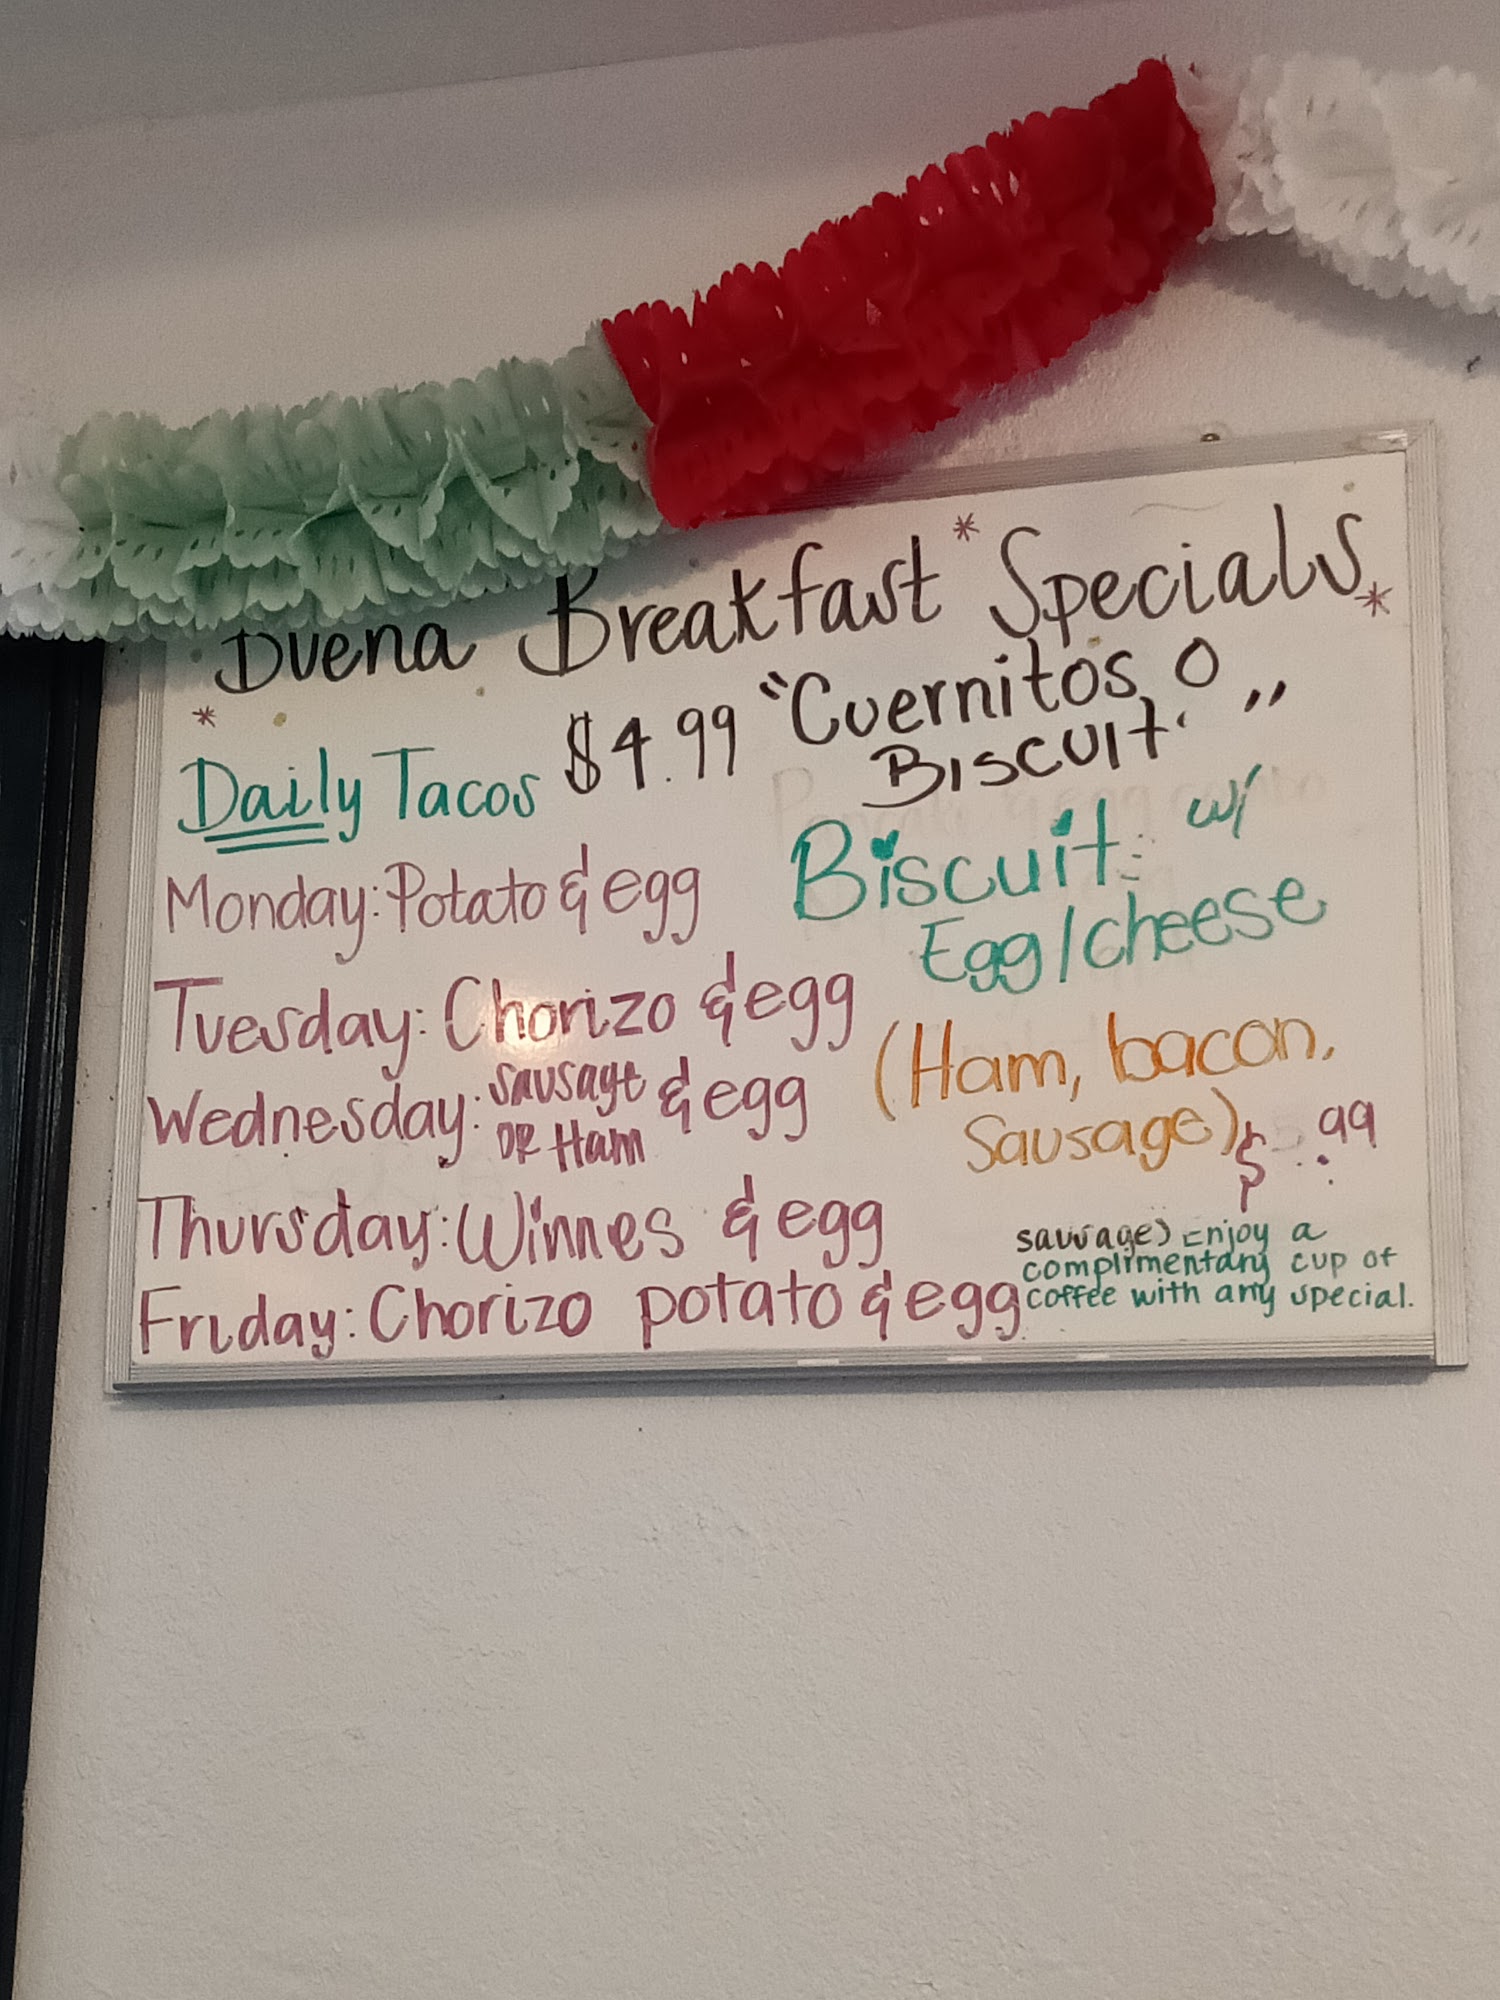 Buena Breakfast Specials
Daily Tacos $4.99 "Cuernitos O
Biscuit"
Monday: Potato & egg
Tuesday: Chorizo & egg
Wednesday: Sausage
OR Ham & egg
Thursday: Winnes & egg
Friday: Chorizo potato & egg
Biscuit: w/
Egg/cheese
(Ham, bacon,
Sausage) $ .99
sausage) Enjoy a
complimentary cup of
coffee with any special.